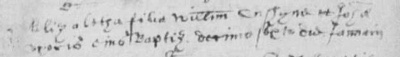 Elizabetha filia Willm Cusyne et Josæ
uxoris eius Baptiz decimo sexto die Januarii